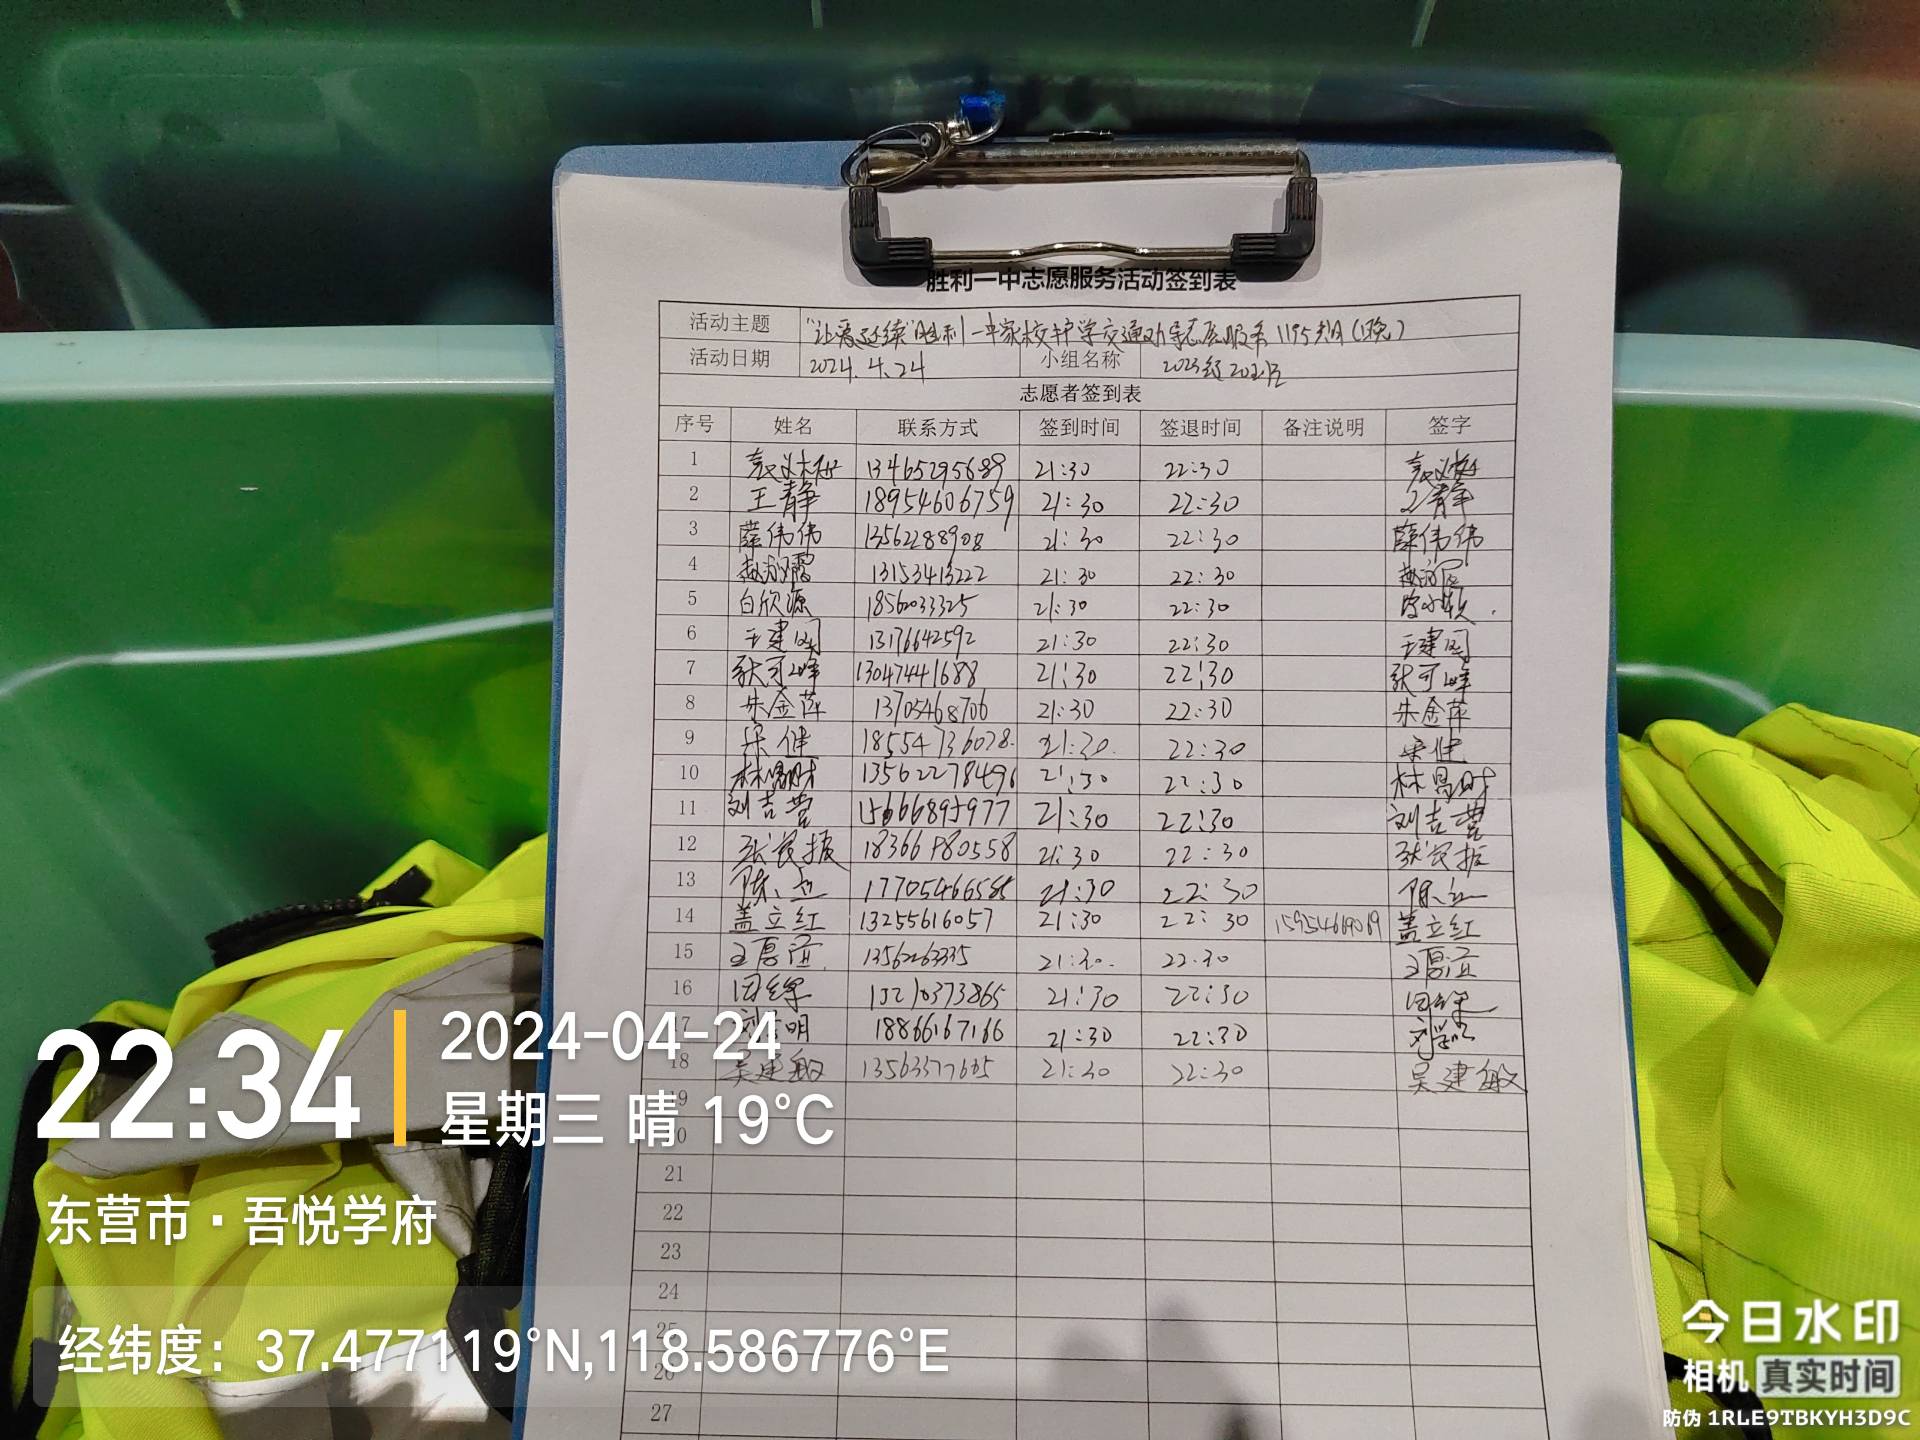 胜利一中志愿服务活动签到表
活动主题 "让爱延续"胜利一中家校护学交通劝导志愿服务1195期(晚)
活动日期 2024.4.24 小组名称 2023级20班
志愿者签到表
序号 姓名 联系方式 签到时间 签退时间 备注说明 签字
1 13465295689 21:30 22:30
2 王静 18954606759 21:30 22:30 王静
3 薛伟伟 13562288908 21:30 22:30 薛伟伟
4 13153413222 21:30 22:30
5 白欣源 18562033325 21:30 22:30
6 王建国 13176642592 21:30 22:30 王建国
7 张可峰 13047441688 21:30 22:30 张可峰
8 朱金萍 13705468706 21:30 22:30 朱金萍
9 宋健 18554736028 21:30 22:30 宋健
10 林昌财 13562278496 21:30 22:30 林昌财
11 刘吉营 15666895977 21:30 22:30 刘吉营
12 21:30 22:30
13 17705466585 21:30 22:30
14 盖立红 13255616057 21:30 22:30 15954619019 盖立红
15 13562663335 21:30 22:30
16 21:30 22:30
17 18866167166 21:30 22:30
18 吴建敏 21:30 22:30 吴建敏
21
22
23
24
25
26
27
22:34
2024-04-24
星期三 晴 19°C
东营市·吾悦学府
经纬度：37.477119°N,118.586776°E
今日水印
相机 真实时间
防伪 1RLE9TBKYH3D9C